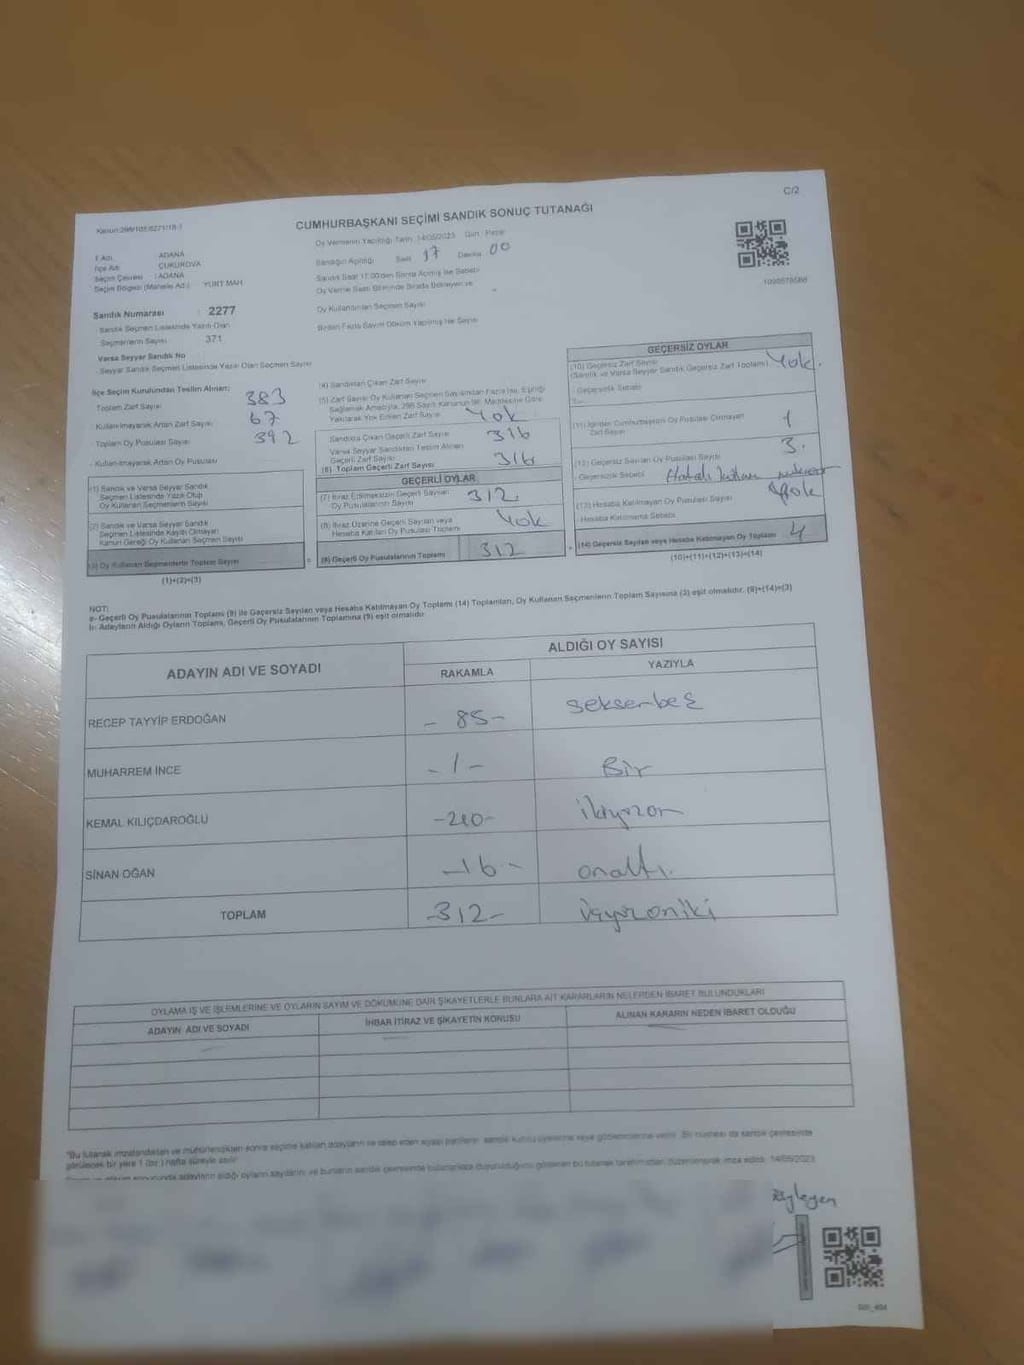 C/2
Kanun:298/105,6271/18-1
CUMHURBAŞKANI SEÇİMİ SANDIK SONUÇ TUTANAĞI
Oy Vermenin Yapıldığı Tarih 14/05/2023 Gün: Pazar
İl Adı : ADANA
Sandığın Açıldığı Saat 17 Dakika 00
İlçe Adı : ÇUKUROVA
Seçim Çevresi : ADANA
Sandık Saat 17:00'den Sonra Açılmış İse Sebebi
Seçim Bölgesi (Mahalle Ad.) : YURT MAH
Oy Verme Saati Bitiminde Sırada Bekleyen ve
Oy Kullandırılan Seçmen Sayısı
Sandık Numarası : 2277
Birden Fazla Sayım Döküm Yapılmış İse Sayısı
Sandık Seçmen Listesinde Yazılı Olan
Seçmenlerin Sayısı : 371
Varsa Seyyar Sandık No
Seyyar Sandık Seçmen Listesinde Yazılı Olan Seçmen Sayısı
İlçe Seçim Kurulundan Teslim Alınan:
Toplam Zarf Sayısı 383
Kullanılmayarak Artan Zarf Sayısı 67
Toplam Oy Pusulası Sayısı 392
Kullanılmayarak Artan Oy Pusulası
(1) Sandık ve Varsa Seyyar Sandık
Seçmen Listesinde Yazılı Olup
Oy Kullanan Seçmenlerin Sayısı
(2) Sandık ve Varsa Seyyar Sandık
Seçmen Listesinde Kayıtlı Olmayan
Kanun Gereği Oy Kullanan Seçmen Sayısı
(3) Oy Kullanan Seçmenlerin Toplam Sayısı
(1)+(2)=(3)
(4) Sandıktan Çıkan Zarf Sayısı
(5) Zarf Sayısı Oy Kullanan Seçmen Sayısından Fazla İse, Eşitliği
Sağlamak Amacıyla, 298 Sayılı Kanunun 98. Maddesine Göre
Yakılarak Yok Edilen Zarf Sayısı Yok
Sandıkta Çıkan Geçerli Zarf Sayısı 316
Varsa Seyyar Sandıktan Teslim Alınan
Geçerli Zarf Sayısı
(6) Toplam Geçerli Zarf Sayısı 316
GEÇERLİ OYLAR
(7) İtiraz Edilmeksizin Geçerli Sayılan
Oy Pusulalarının Sayısı 312
(8) İtiraz Üzerine Geçerli Sayılan veya
Hesaba Katılan Oy Pusulası Toplamı Yok
(9) Geçerli Oy Pusulalarının Toplamı 312
GEÇERSİZ OYLAR
(10) Geçersiz Zarf Sayısı
(Sandık ve Varsa Seyyar Sandık Geçersiz Zarf Toplamı) Yok.
Geçersizlik Sebebi
(11) İçinden Cumhurbaşkanı Oy Pusulası Çıkmayan
Zarf Sayısı 1
(12) Geçersiz Sayılan Oy Pusulası Sayısı 3.
Geçersizlik Sebebi
(13) Hesaba Katılmayan Oy Pusulası Sayısı Yok
Hesaba Katılmama Sebebi
(14) Geçersiz Sayılan veya Hesaba Katılmayan Oy Toplamı 4
(10)+(11)+(12)+(13)=(14)
NOT:
a- Geçerli Oy Pusulalarının Toplamı (9) ile Geçersiz Sayılan veya Hesaba Katılmayan Oy Toplamı (14) Toplamları, Oy Kullanan Seçmenlerin Toplam Sayısına (3) eşit olmalıdır. (9)+(14)=(3)
b- Adayların Aldığı Oyların Toplamı, Geçerli Oy Pusulalarının Toplamına (9) eşit olmalıdır
ADAYIN ADI VE SOYADI
ALDIĞI OY SAYISI
RAKAMLA YAZIYLA
RECEP TAYYİP ERDOĞAN - 85 - seksenbeş
MUHARREM İNCE - 1 - Bir
KEMAL KILIÇDAROĞLU -210- ikiyüzon
SİNAN OĞAN -16 - onaltı.
TOPLAM -312- üçyüzoniki
OYLAMA İŞ VE İŞLEMLERİNE VE OYLARIN SAYIM VE DÖKÜMÜNE DAİR ŞİKAYETLERLE BUNLARA AİT KARARLARIN NELERDEN İBARET BULUNDUKLARI
ADAYIN ADI VE SOYADI İHBAR İTİRAZ VE ŞİKAYETİN KONUSU ALINAN KARARIN NEDEN İBARET OLDUĞU